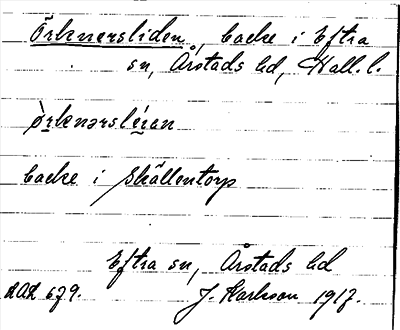 Örknersliden, backe i Eftra
sn, Årstads hd, Hall. l.
òrknərsléian
backe i Skällentorp
Eftra sn, Årstads hd
J. Karlsson 1917.